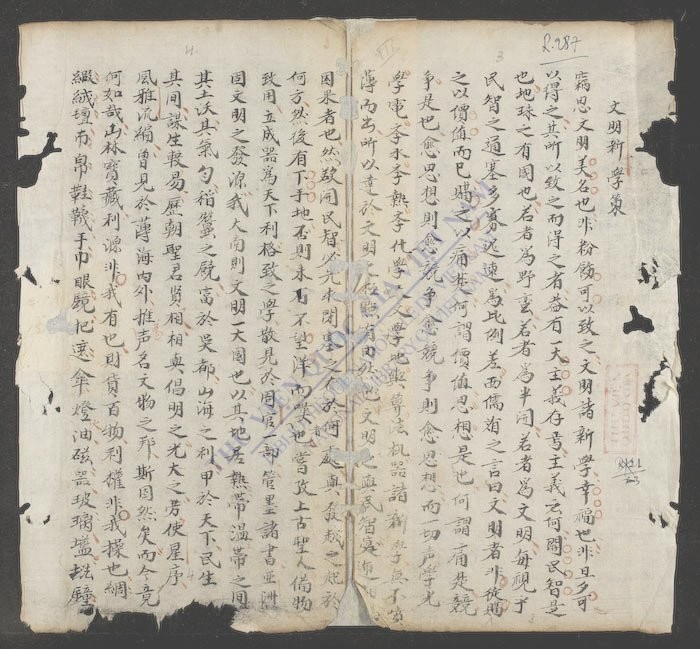 R.287
3
4
文明新學策
竊思文明美名也非粉飾可以致之文明諸新學幸福也非旦夕可
以得之其所以致之而得之者益有一大主義存焉主義云何開民智是
也地球之有國也若者為野蠻若者為半開若者為文明每視乎
民智之通塞多寡遲速為比例差西儒有之言曰文明者非徒購
之以價值而已購之以痛楚何謂價值思想是也何謂痛楚競
爭是也愈思想則愈競爭愈競爭則愈思想而一切声學光
學電學水學熱學化學天文學地輿算法机器諸新學無不
薄而出所以達於文明之極點有由於也文明之與民智
因果者也然欲開民智必先求閉塞之根於何處與發越之起於
何方然後有下手地否則未有不望洋而嘆也嘗攷上古聖人備物
致用立成器為天下利格致之學散見於周官一部管墨諸書亞洲
固文明之發源我大南則文明一大國也以其地居熱帶温帶之間
其土沃其氣勻稻蠶之饒富於吳都山海之利甲於天下民生
其間謀生較易歷朝聖君賢相相與倡明之光大之旁使星序
風雅流絹曾見於薄海內外推声名文物之邦斯固然矣而今竟
何如哉山林寶藏利源非我有也財貨百物利權非我操也綢
緞絨壇布帛鞋韈手巾眼鏡把遮傘燈油磁器玻璃 鐘
THƯ VIỆN QUỐC GIA VIỆT NAM